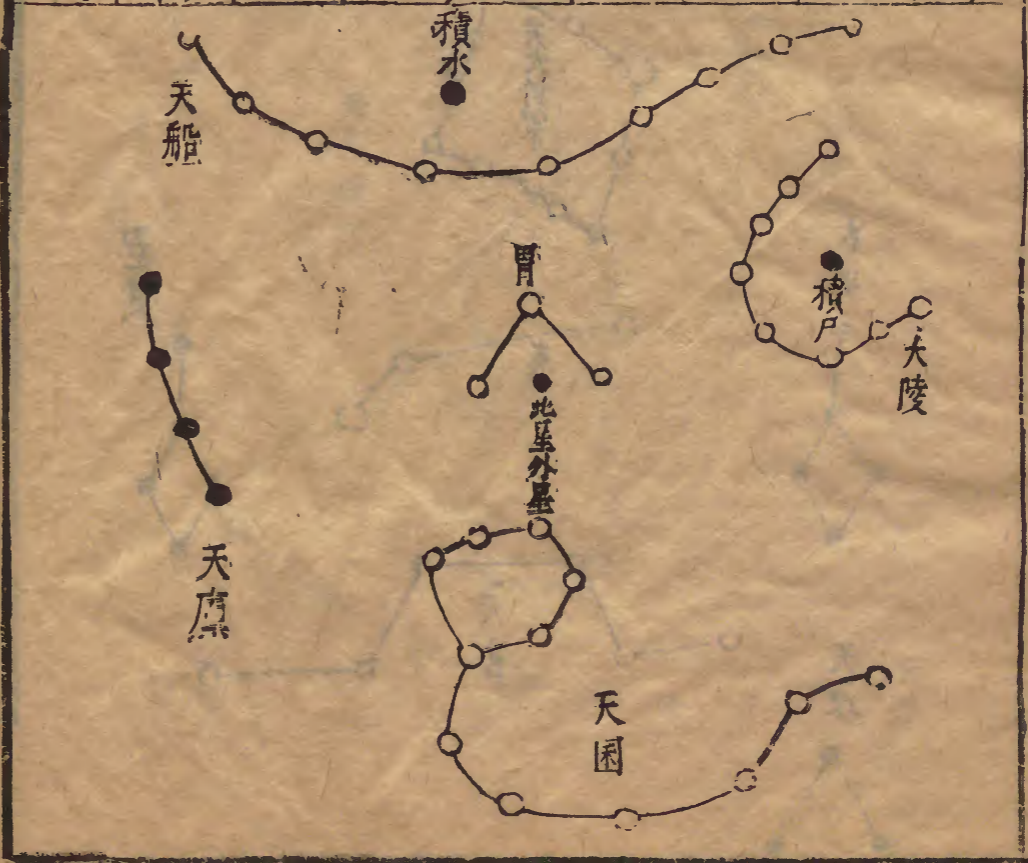 積水
天船
胃
積尸
大陵
此星外星
天廩
天囷